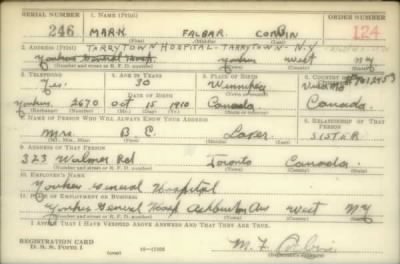 SERIAL NUMBER 1. NAME (Print) ORDER NUMBER
246 MARK FALBAR CORBIN 124
(First) (Middle) (Last)
TARRYTOWN HOSPITAL - TARRYTOWN - N.Y.
2. ADDRESS (Print)
Yonkers General Hosp. Yonkers West NY
(Number and street or R. F. D. number) (Town) (County) (State)
3. TELEPHONE 4. AGE IN YEARS 5. PLACE OF BIRTH 6. COUNTRY OF
Yes. 30 Winnipeg
DATE OF BIRTH
Yonkers 2670 Oct 15 1910 Canada Canada.
(Exchange) (Number) (Mo.) (Day) (Yr.) (State or country)
7. NAME OF PERSON WHO WILL ALWAYS KNOW YOUR ADDRESS 8. RELATIONSHIP OF THAT PERSON
Mrs. B. E. SISTER
(Mr., Mrs., Miss) (First) (Middle) (Last)
9. ADDRESS OF THAT PERSON
323 Walmer Rd Toronto Canada.
(Number and street or R. F. D. number) (Town) (County) (State)
10. EMPLOYER'S NAME
Yonkers General Hospital
11. PLACE OF EMPLOYMENT OR BUSINESS
Yonkers General Hosp Ashburton Ave West NY
(Number and street or R. F. D. number) (Town) (County) (State)
I AFFIRM THAT I HAVE VERIFIED ABOVE ANSWERS AND THAT THEY ARE TRUE.
REGISTRATION CARD
D. S. S. Form 1 (over) M. F. Corbin
(Registrant's signature)